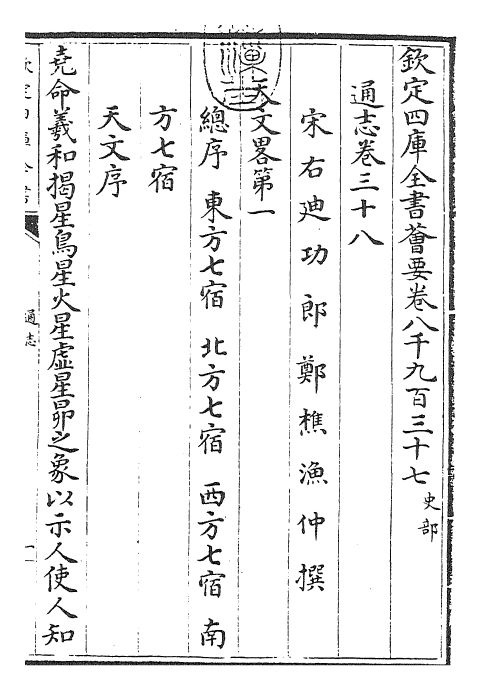 欽定四庫全書薈要卷八千九百三十七 史部
通志卷三十八
宋右迪功郎鄭樵漁仲撰
天文畧第一
總序 東方七宿 北方七宿 西方七宿 南
方七宿
天文序
堯命羲和揭星鳥星火星虛星昴之象以示人使人知
通志